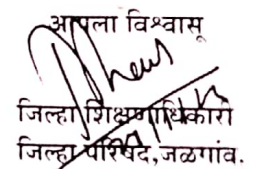 आपला विश्वासू
जिल्हा शिक्षणाधिकारी
जिल्हा परिषद,जळगांव.